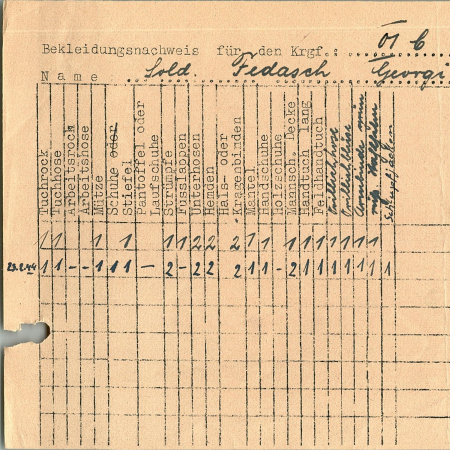 Bekleidungsnachweis für den Krgf.: 01 6
Name Sold. Fedasch Georgi
Tuchrock
Tuchhose
Arbeitsrock
Arbeitshose
Mütze
Schuhe oder
Stiefel
Pantoffel oder
Laufschuhe
Strümpfe
Fusslappen
Unterhosen
Hemden
Hals- oder
Kragenbinden
Mantel
Handschuhe
Holzschuhe
Mannsch. Decke
Handtuch lang
Feldhandtuch
Drillichhose
1 1 1 1 1 1 2 2 2 1 1 1 1 1 1 1 1 1 1
23.2.44 1 1 - - 1 1 1 - 2 - 2 2 2 1 1 - 2 1 1 1 1 1 1 1